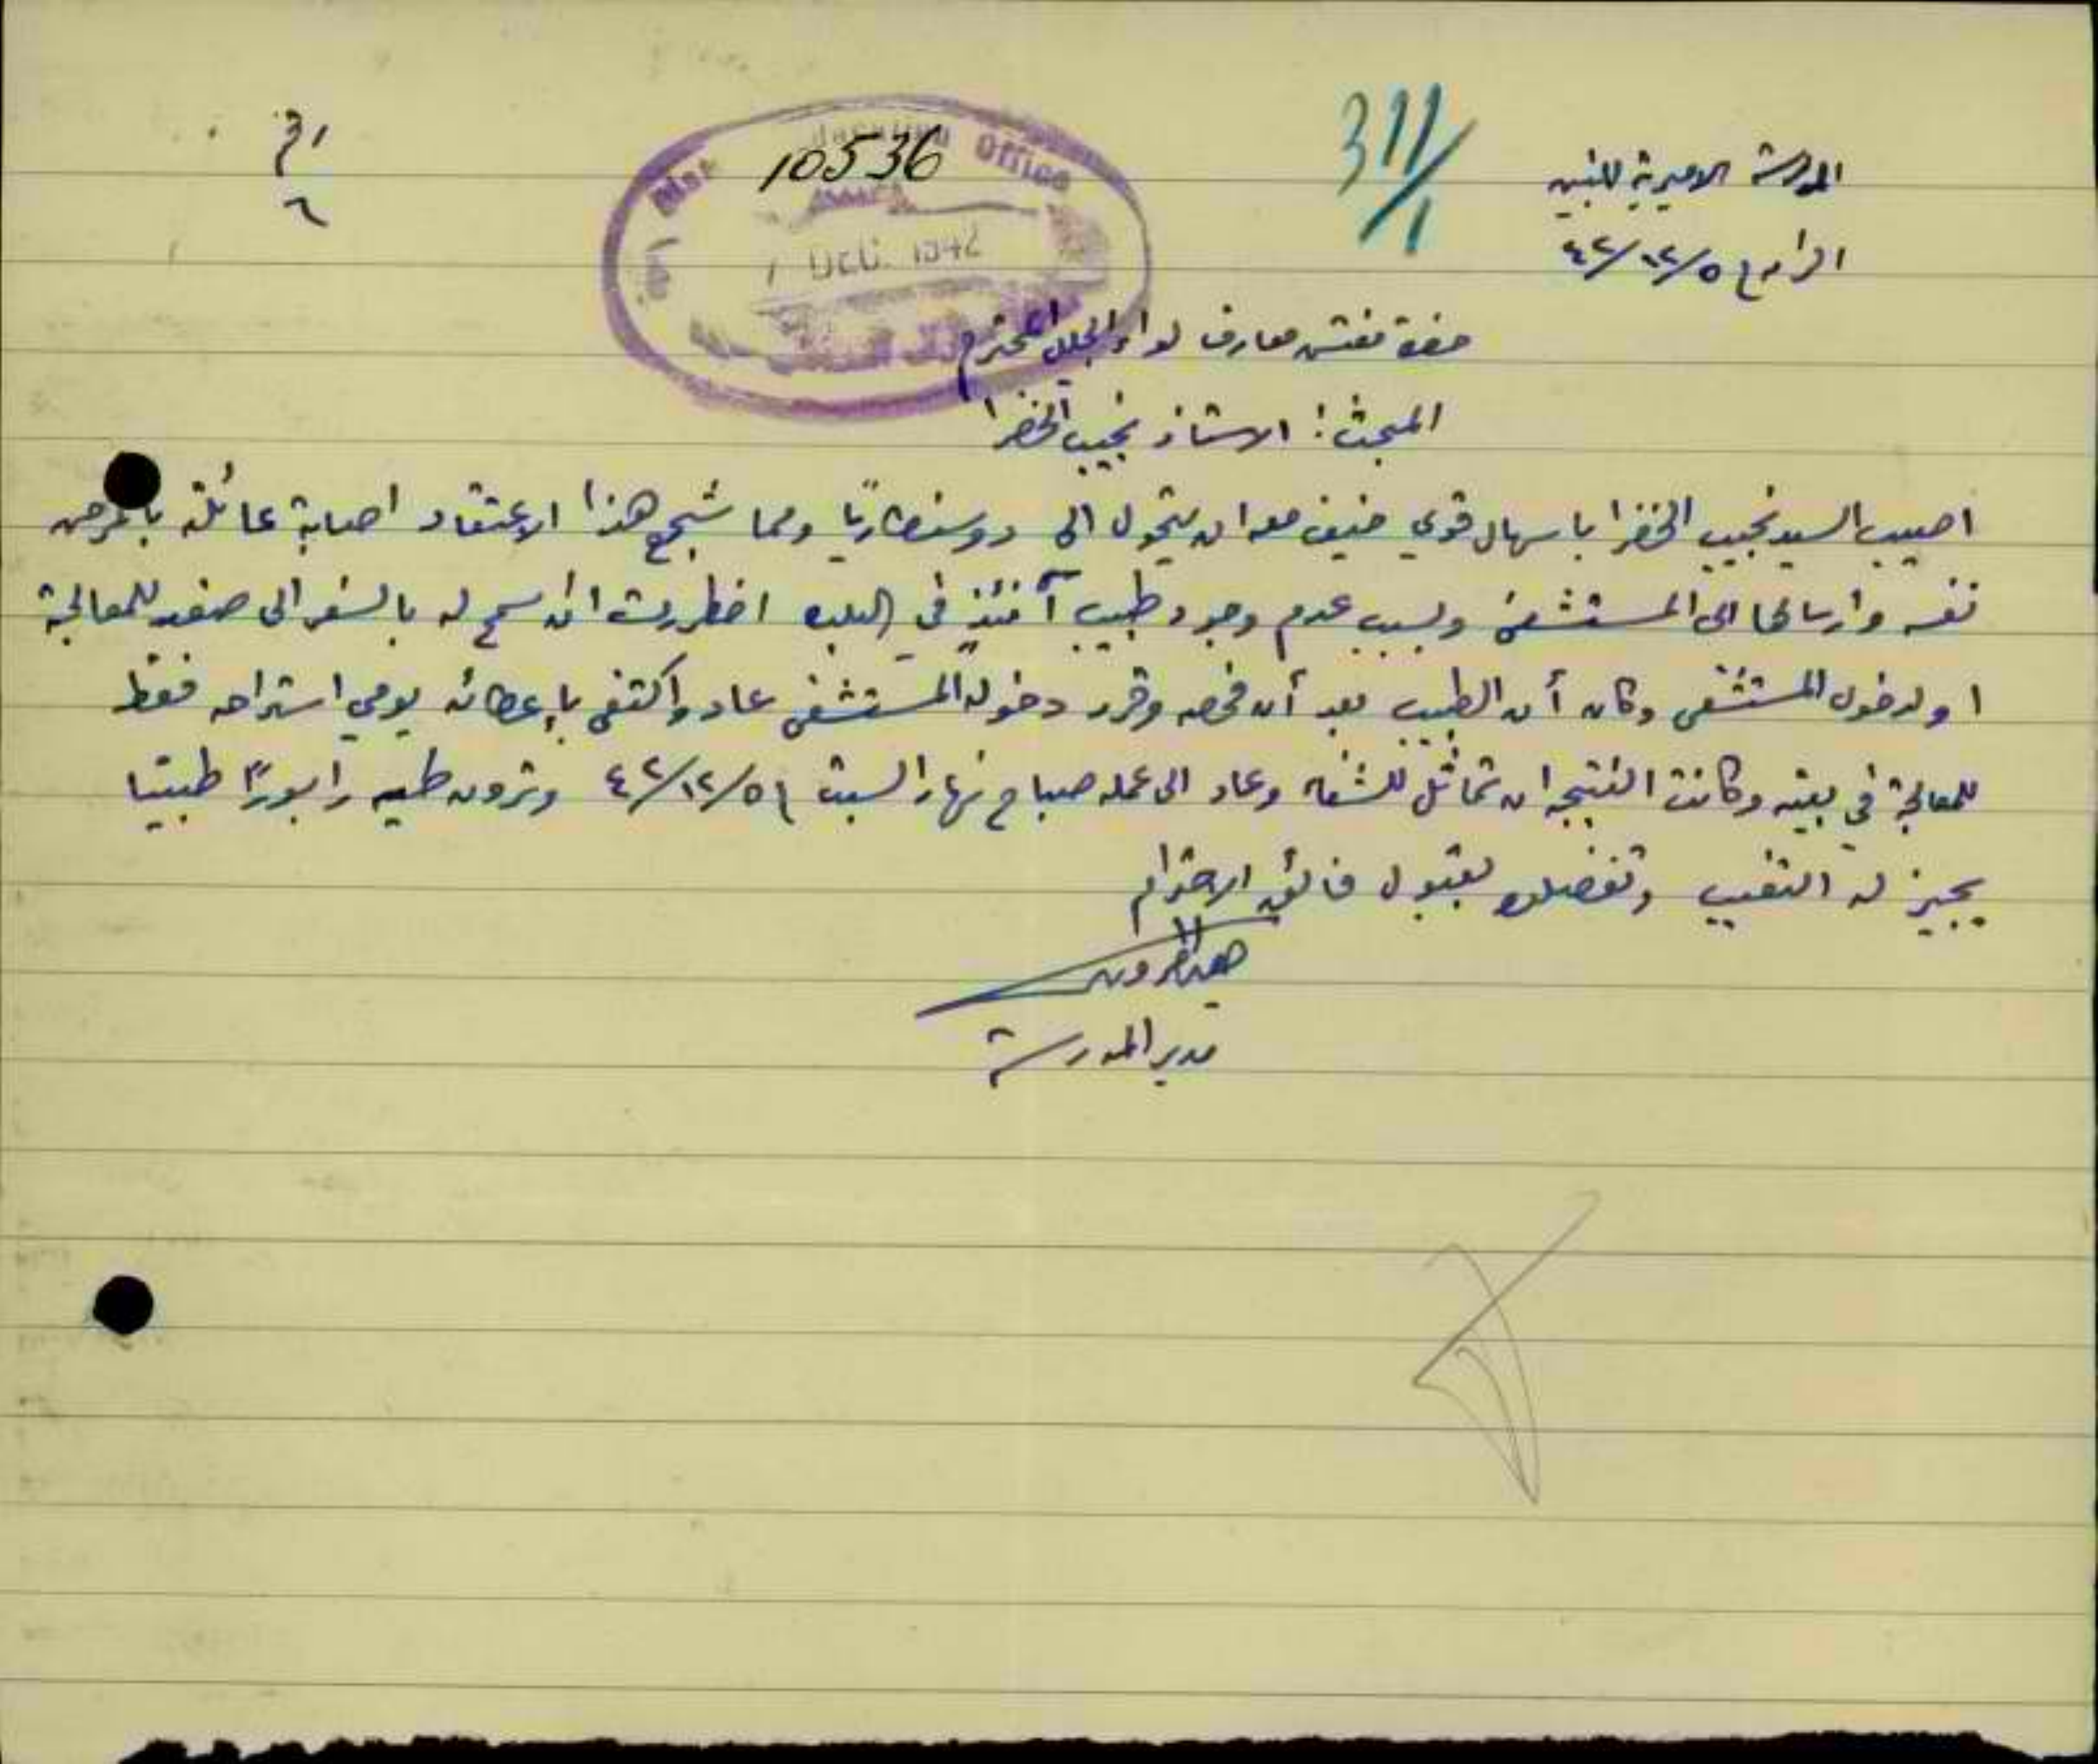 المدرسة الاميرية للبنين
الرامه ٥/١٢/٤٢
311/1
10536
Office
7 DEC. 1942
٦
حضرة مفتش معارف لواء الجليل المحترم
المبحث: الاستاذ نجيب الخضرا
اصيب السيد نجيب الخضرا باسهال قوي خيف معه ان يتحول الى دوسنطاريا ومما شجع هذا الاعتقاد اصابة عائلته بالمرض
نفسه وارسالها الى المستشفى وبسبب عدم وجود طبيب آنئذٍ في البلده اضطررت ان اسمح له بالسفر الى صفد للمعالجة
او لدخول المستشفى وكان أن الطبيب بعد أن فحصه وقرر دخوله المستشفى عاد واكتفى بإعطائه يومي استراحه فقط
للمعالجة في بيته وكانت النتيجه ان تماثل للشفاء وعاد الى عمله صباح نهار السبت ٥/١٢/٤٢ وترون طيه رابورًا طبيًا
يجيز له التغيب وتفضلوا بقبول فائق الاحترام
مدير المدرسة